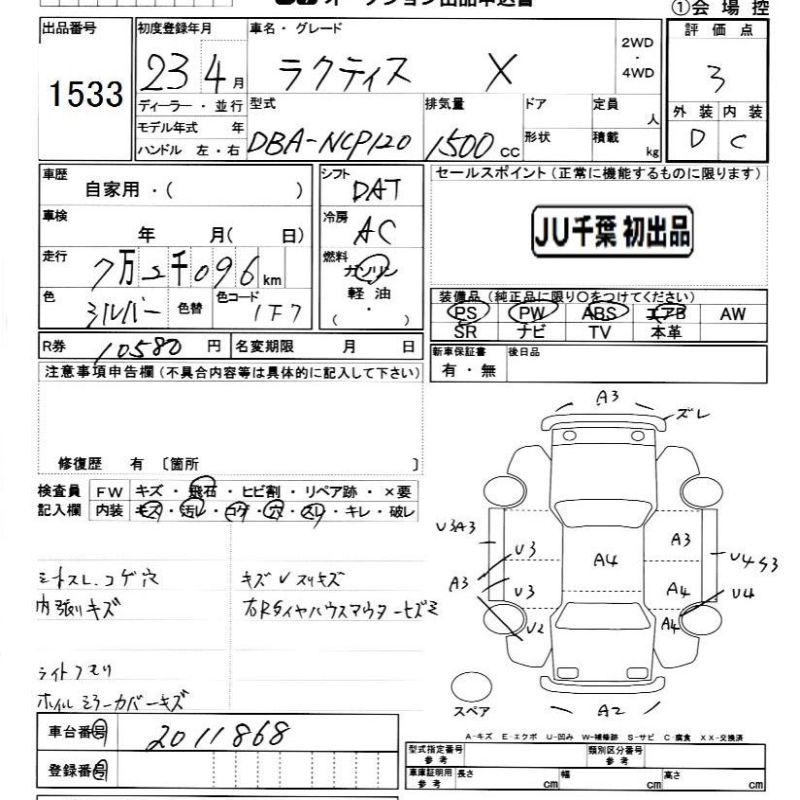 オークション出品申込書
①会場控
出品番号
1533
初度登録年月
23 4月
車名・グレード
ラクティス X
2WD
・
4WD
評価点
3
ディーラー・並行
モデル年式 年
ハンドル 左・右
型式
DBA-NCP120
排気量
1500 CC
ドア
形状
定員
人
積載
kg
外装 内装
D C
車歴
自家用・( )
車検
年 月( 日)
走行
7万2千096km
色
シルバー
色替
色コード
1F7
シフト
DAT
冷房
AC
燃料
ガソリン
軽油
・
( )
セールスポイント(正常に機能するものに限ります)
JU千葉 初出品
装備品(純正品に限り○をつけてください)
PS PW ABS エアB AW
SR ナビ TV 本革
R券 10580 円
名変期限 月 日
新車保証書
有・無
後日品
注意事項申告欄(不具合内容等は具体的に記入して下さい)
修復歴 有 〔箇所 〕
検査員
記入欄
FW キズ・飛石・ヒビ割・リペア跡・×要
内装 キズ・汚レ・コゲ・穴・スレ・キレ・破レ
コゲ穴
内張りキズ
キズ U スリキズ
ライトクモリ
ホイルミラーカバーキズ
A3
ズレ
U3A3
U3
A3
U3
U2
A4
A3
A4
A4
U4S3
U4
A2
スペア
A-キズ E-エクボ U-凹み W-補修跡 S-サビ C-腐食 XX-交換済
車台番号
2011868
登録番号
型式指定番号
参考
類別区分番号
参考
車庫証明用
参考
長さ cm
幅 cm
高さ cm